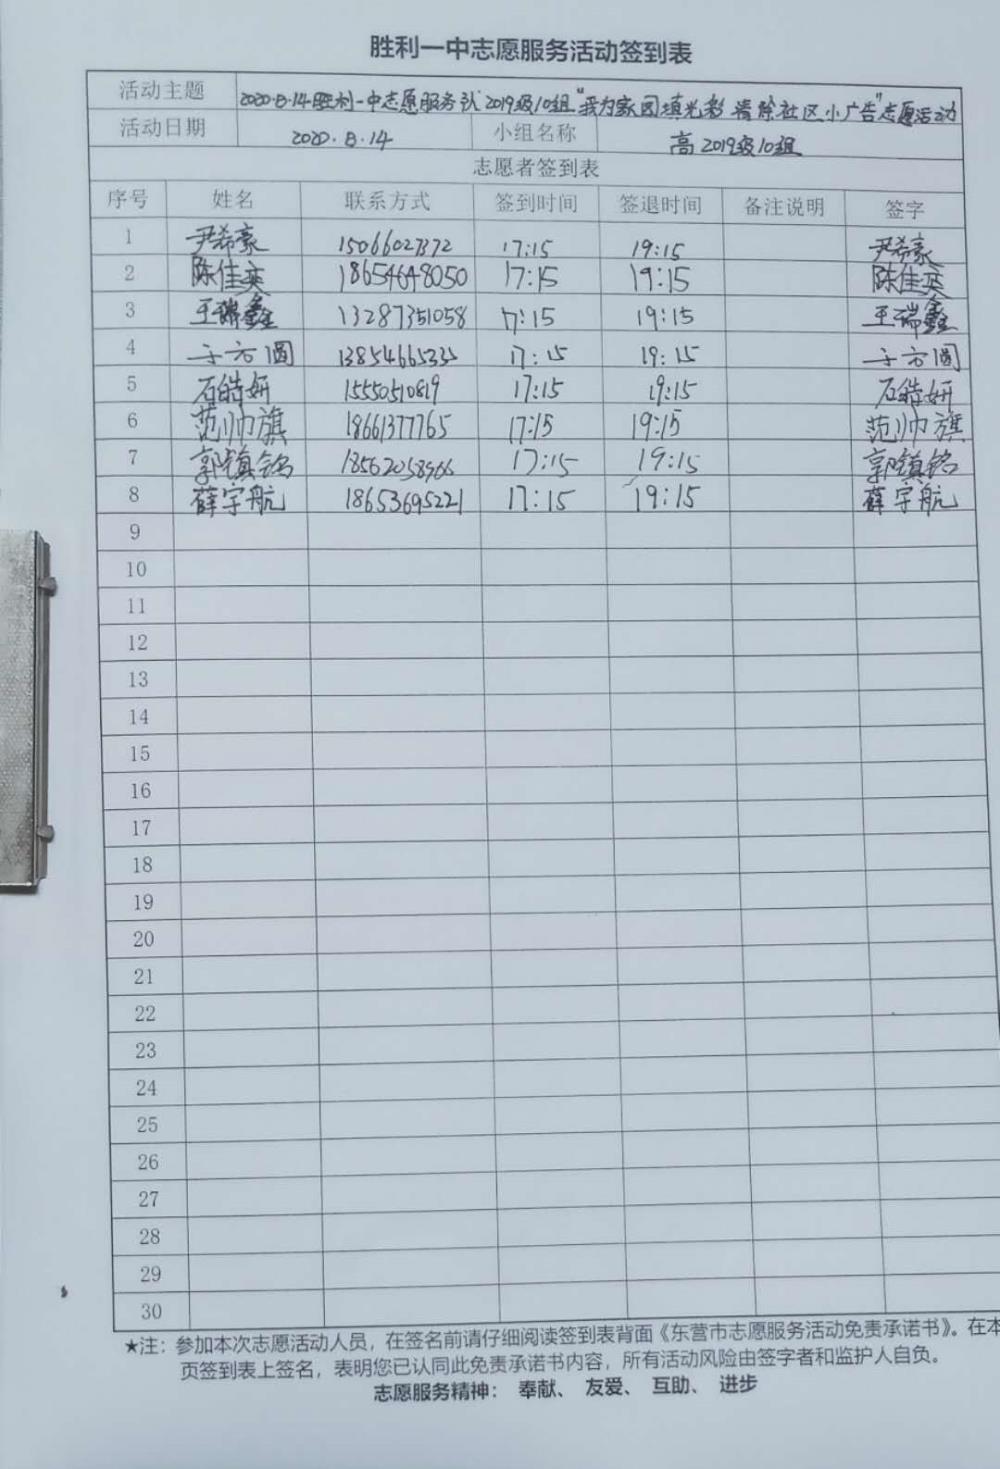 胜利一中志愿服务活动签到表
活动主题 2020.8.14胜利一中志愿服务队2019级10组"我为家园填光彩 清除社区小广告"志愿活动
活动日期 2020.8.14 小组名称 高2019级10组
志愿者签到表
序号 姓名 联系方式 签到时间 签退时间 备注说明 签字
1 尹希豪 15066027372 17:15 19:15 尹希豪
2 陈佳奕 18654648050 17:15 19:15 陈佳奕
3 王瑞鑫 13287351058 17:15 19:15 王瑞鑫
4 于方圆 13854665335 17:15 19:15 于方圆
5 石皓妍 15550510819 17:15 19:15 石皓妍
6 范帅旗 18661377765 17:15 19:15 范帅旗
7 郭镇铭 18562058966 17:15 19:15 郭镇铭
8 薛宇航 18653695221 17:15 19:15 薛宇航
9
10
11
12
13
14
15
16
17
18
19
20
21
22
23
24
25
26
27
28
29
30
★注：参加本次志愿活动人员，在签名前请仔细阅读签到表背面《东营市志愿服务活动免责承诺书》。在本
页签到表上签名，表明您已认同此免责承诺书内容，所有活动风险由签字者和监护人自负。
志愿服务精神： 奉献、 友爱、 互助、 进步